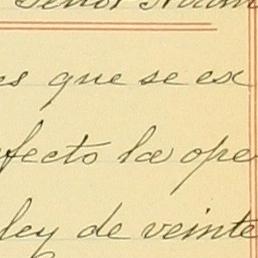 Señor Adam
es que se ex
fecto la ope
ley de veinte